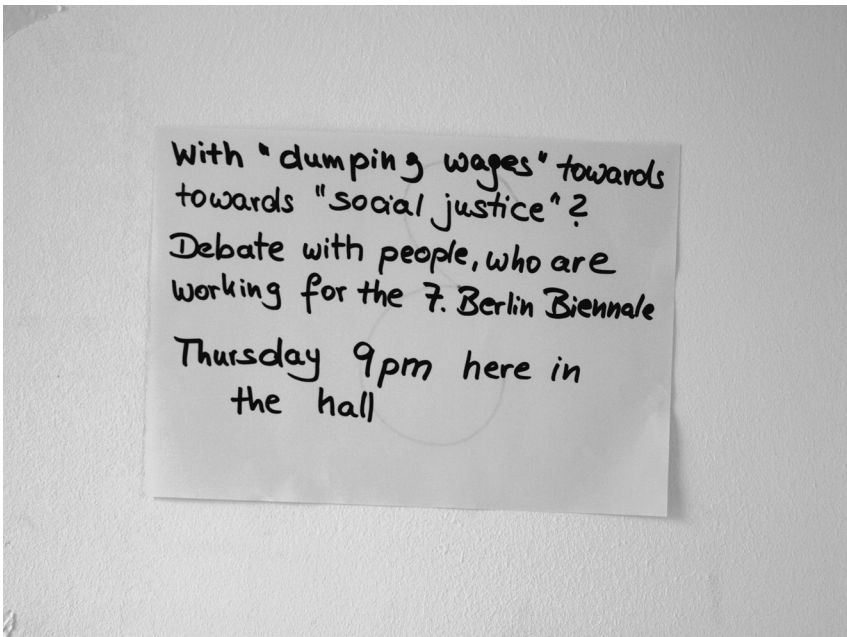 With "dumping wages" towards
towards "social justice"?
Debate with people, who are
working for the 7. Berlin Biennale
Thursday 9pm here in
the hall